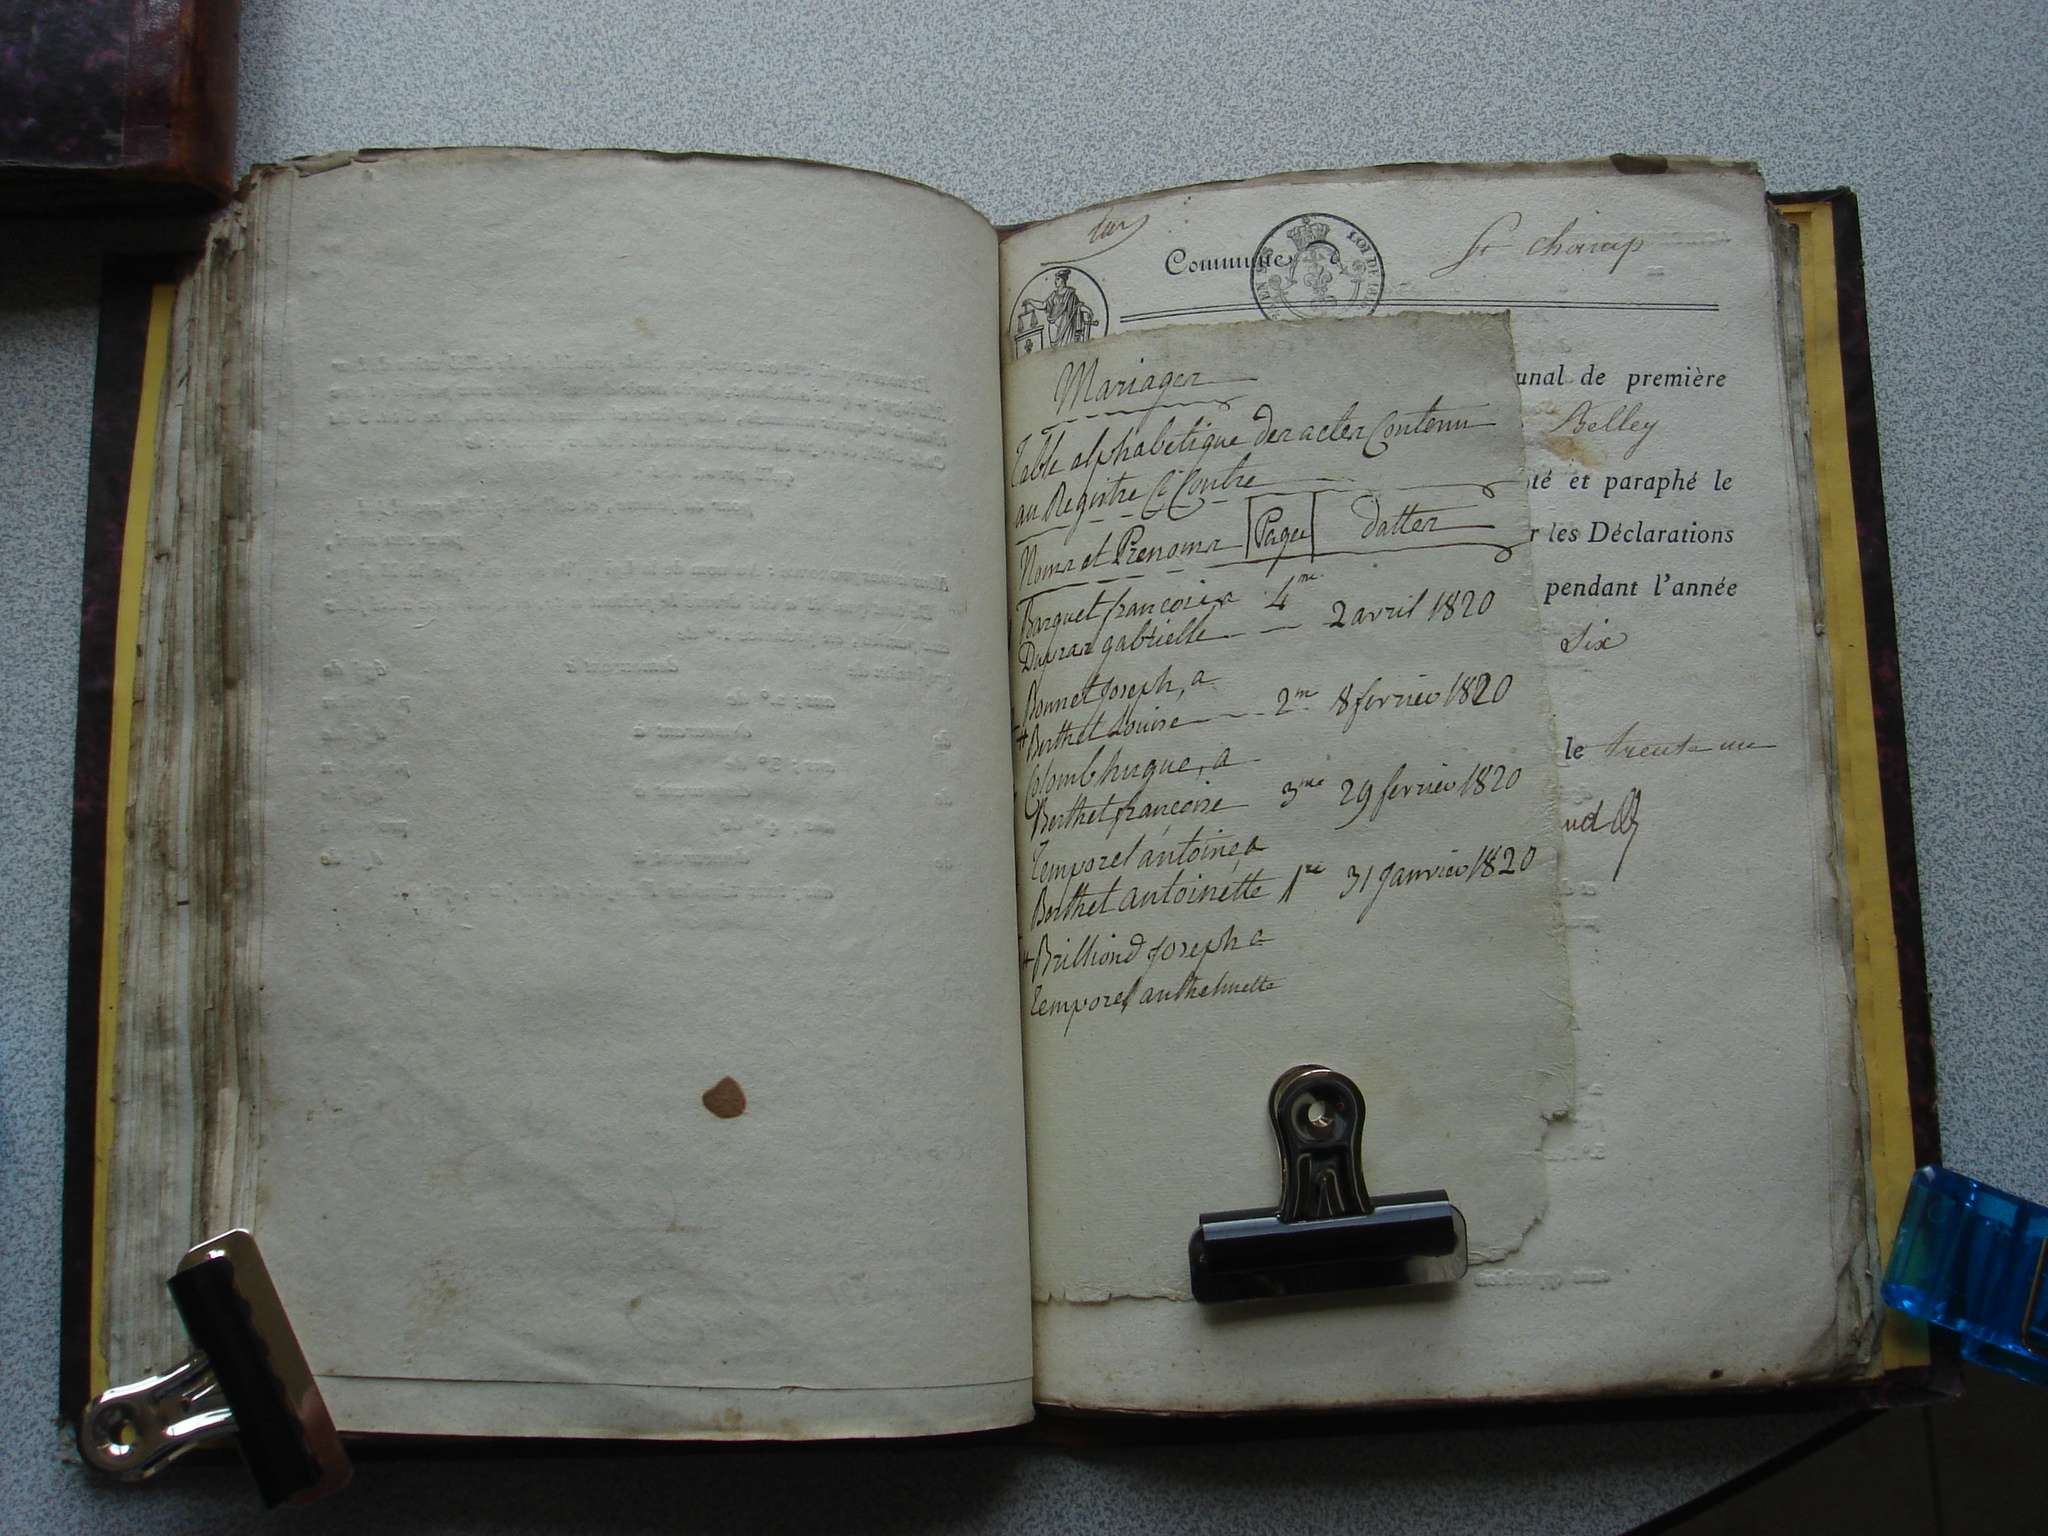 Commune de St champ
LOI DE 1816
Mariages
unal de première
Table alphabetique des actes Contenu
Belley
au Registre Ci Contre
té et paraphé le
Noms et Prenoms Pages dattes
r les Déclarations
Barquet francois a 4me
pendant l'année
Dupras gabrielle 2 avril 1820
Six
Bonnet Joseph, a
Berthet Louise 2me 8 fevrier 1820
Colomb hugue, a
le trente un
Berthet francoise 3me 29 fevrier 1820
ud
Temporel antoine, a
Berthet antoinette 1re 31 Janvier 1820
Brilliond Joseph a
Temporel anthelmette